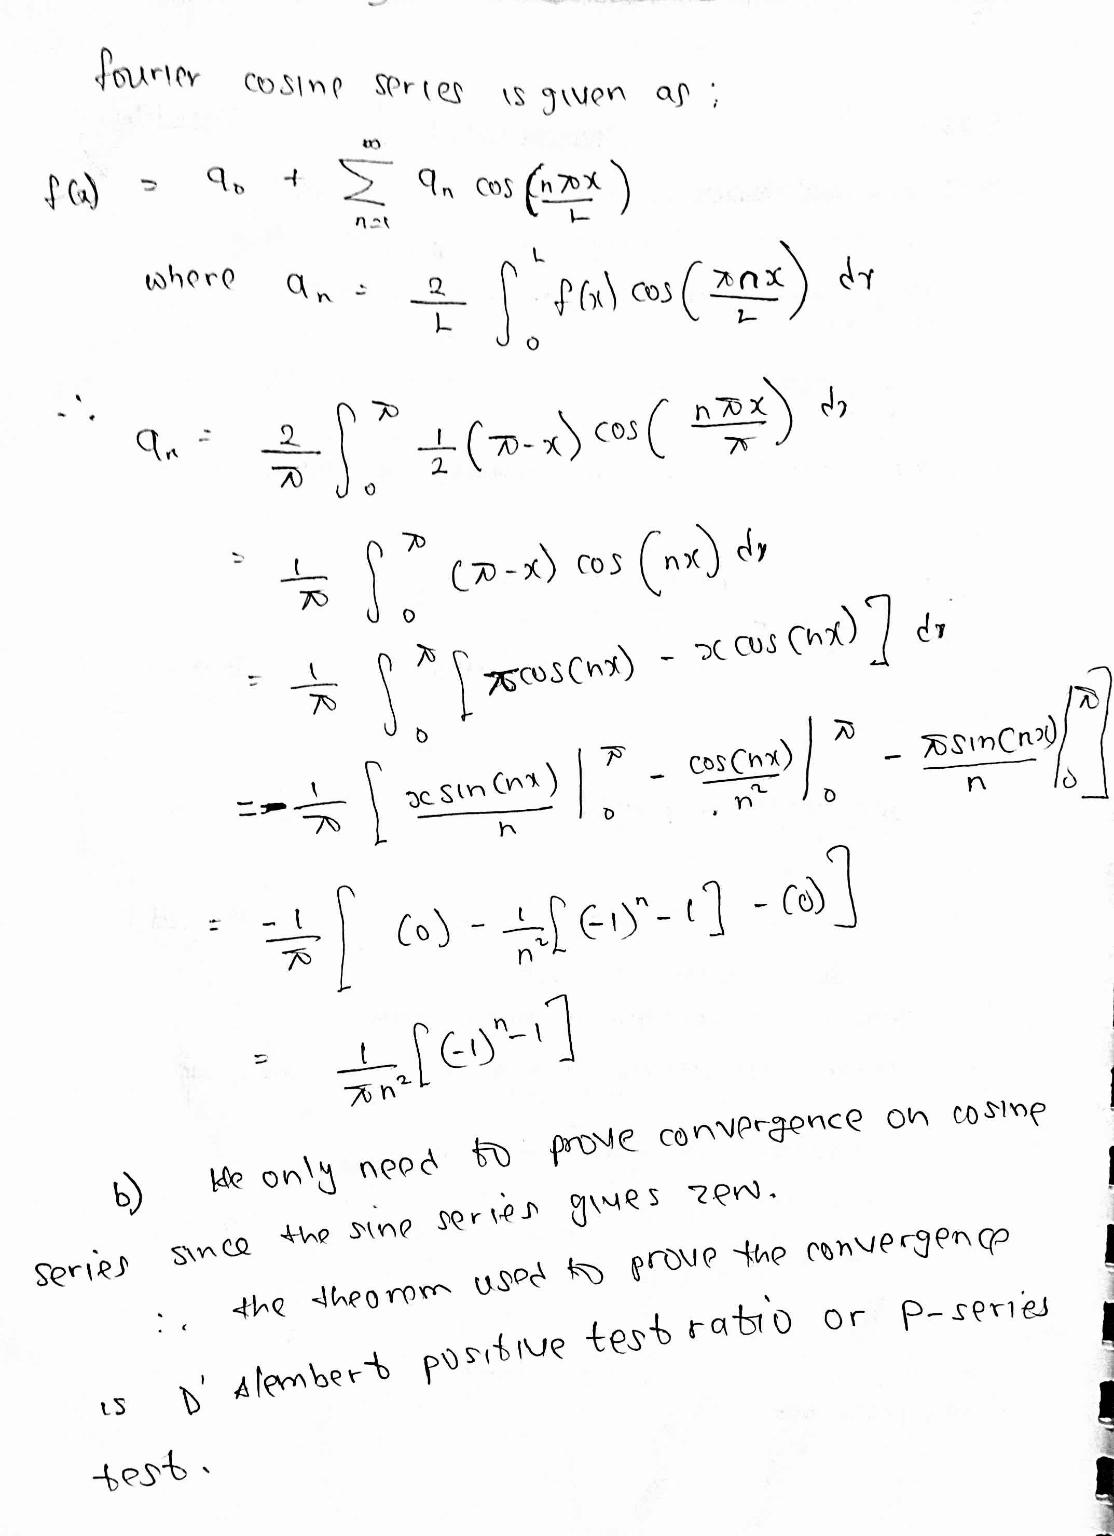 fourier cosine series is given as ;
f(x) = a₀ + ∑_{n=1}^{∞} aₙ cos (nπx/L)
where aₙ = 2/L ∫₀^L f(x) cos (πnx/L) dx
∴ aₙ = 2/π ∫₀^π 1/2 (π-x) cos ( nπx/π ) dx
= 1/π ∫₀^π (π-x) cos (nx) dx
= 1/π ∫₀^π [ πcos(nx) - x cos (nx) ] dx
= -1/π [ x sin(nx)/n |₀^π - cos(nx)/n² |₀^π - πsin(nx)/n |₀^π ]
= -1/π [ (0) - 1/n² [ (-1)ⁿ - 1 ] - (0) ]
= 1/πn² [ (-1)ⁿ-1 ]
b) We only need to prove convergence on cosine
series since the sine series gives zero.
∴ the theorem used to prove the convergence
is D' Alembert positive test ratio or p-series
test.